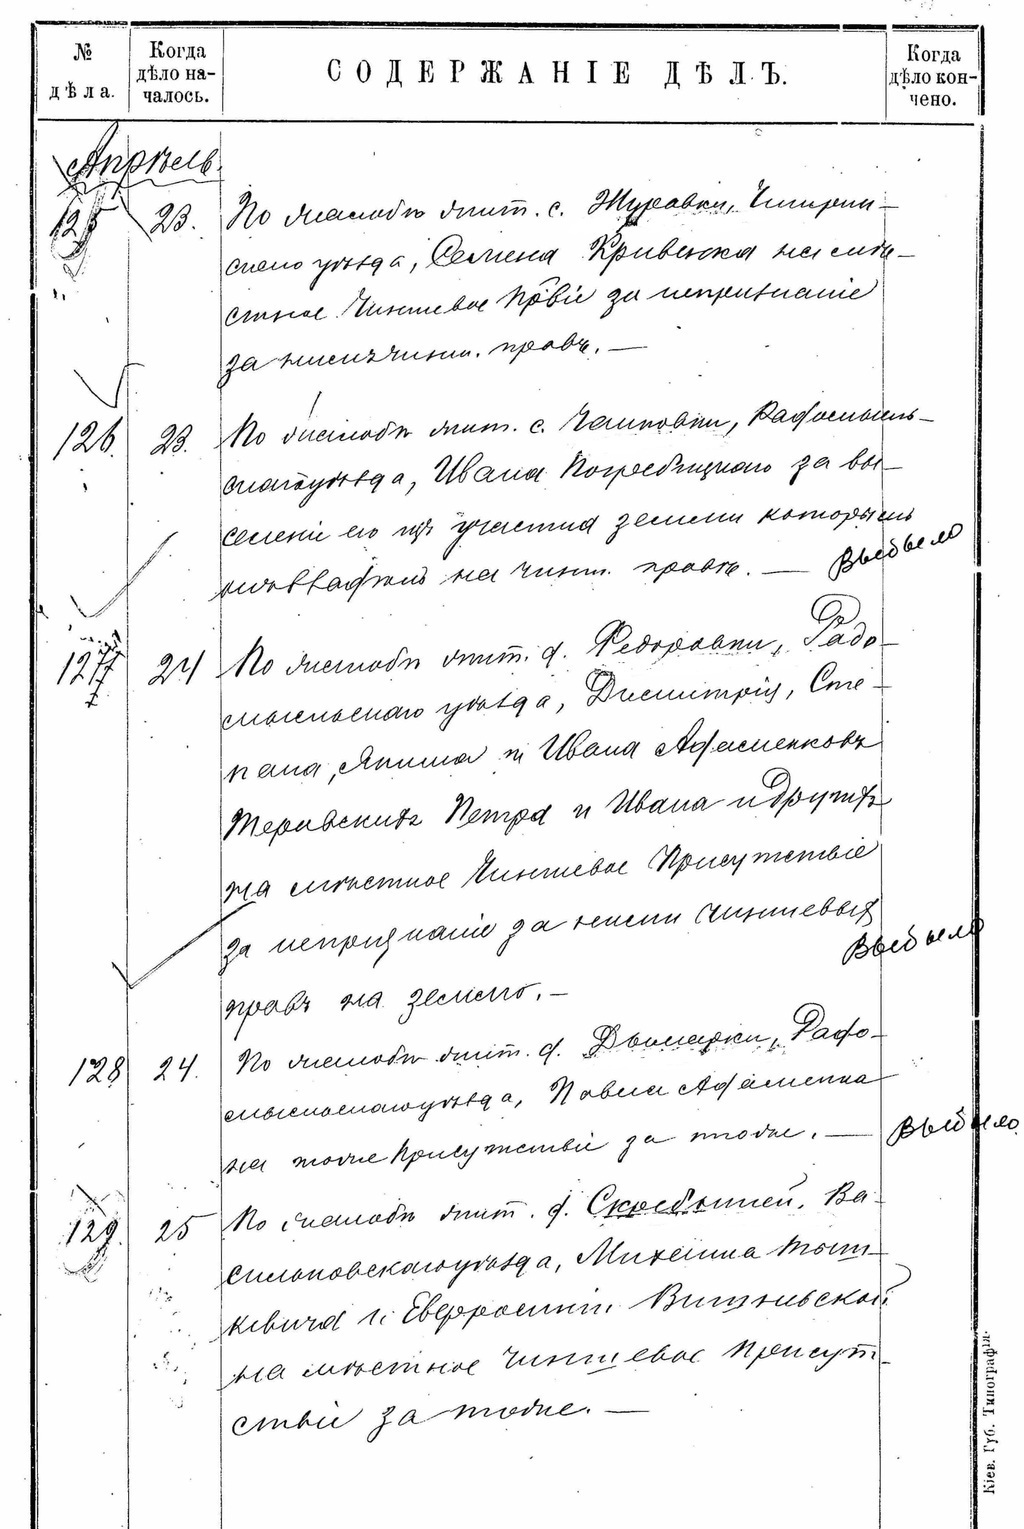 № дѣла.
Когда дѣло началось.
СОДЕРЖАНІЕ ДѢЛЪ.
Когда дѣло кончено.
Апрѣль.
125 23. По жалобѣ жит. с. Журовки, Чигрин-
скаго уѣзда, Семена Кривенка на мѣ-
стное Чиншевое за непризнаніе
за нимъ чинш. правъ. —
126. 23. По жалобѣ жит. с. Радомысль-
скаго уѣзда, Ивана Погребицкаго за вы-
селеніе его изъ участка земли которымъ
онъ владѣлъ на чинш. правѣ. — Выбыло
127 24 По жалобѣ жит. д. Федоровки, Радо-
мысльскаго уѣзда, Димитрія, Сте-
пана, Якима и Ивана Адаменковъ
Петра и Ивана и другихъ
на мѣстное Чиншевое Присутствіе
за непризнаніе за ними чиншевыхъ
Выбыло
правъ на землю. —
128 24. По жалобѣ жит. д. Дымарки, Радо-
мысльскаго уѣзда, Павла Адаменка
на тоже Присутствіе за тоже. — Выбыло
129. 25 По жалобѣ жит. д. Ва-
сильковскаго уѣзда, Михаила
и Евфросиніи
на мѣстное Чиншевое Присут-
ствіе за тоже. —
Кіев. Губ. Типографія.